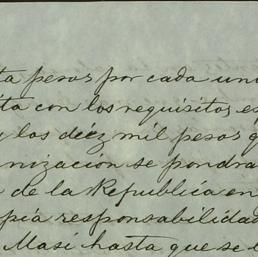 ta pesos por cada uni
ita con los requisitos es
y los diéz mil pesos q
nización se pondra
de la Republica en
pia responsabilidad
Masi hasta que se